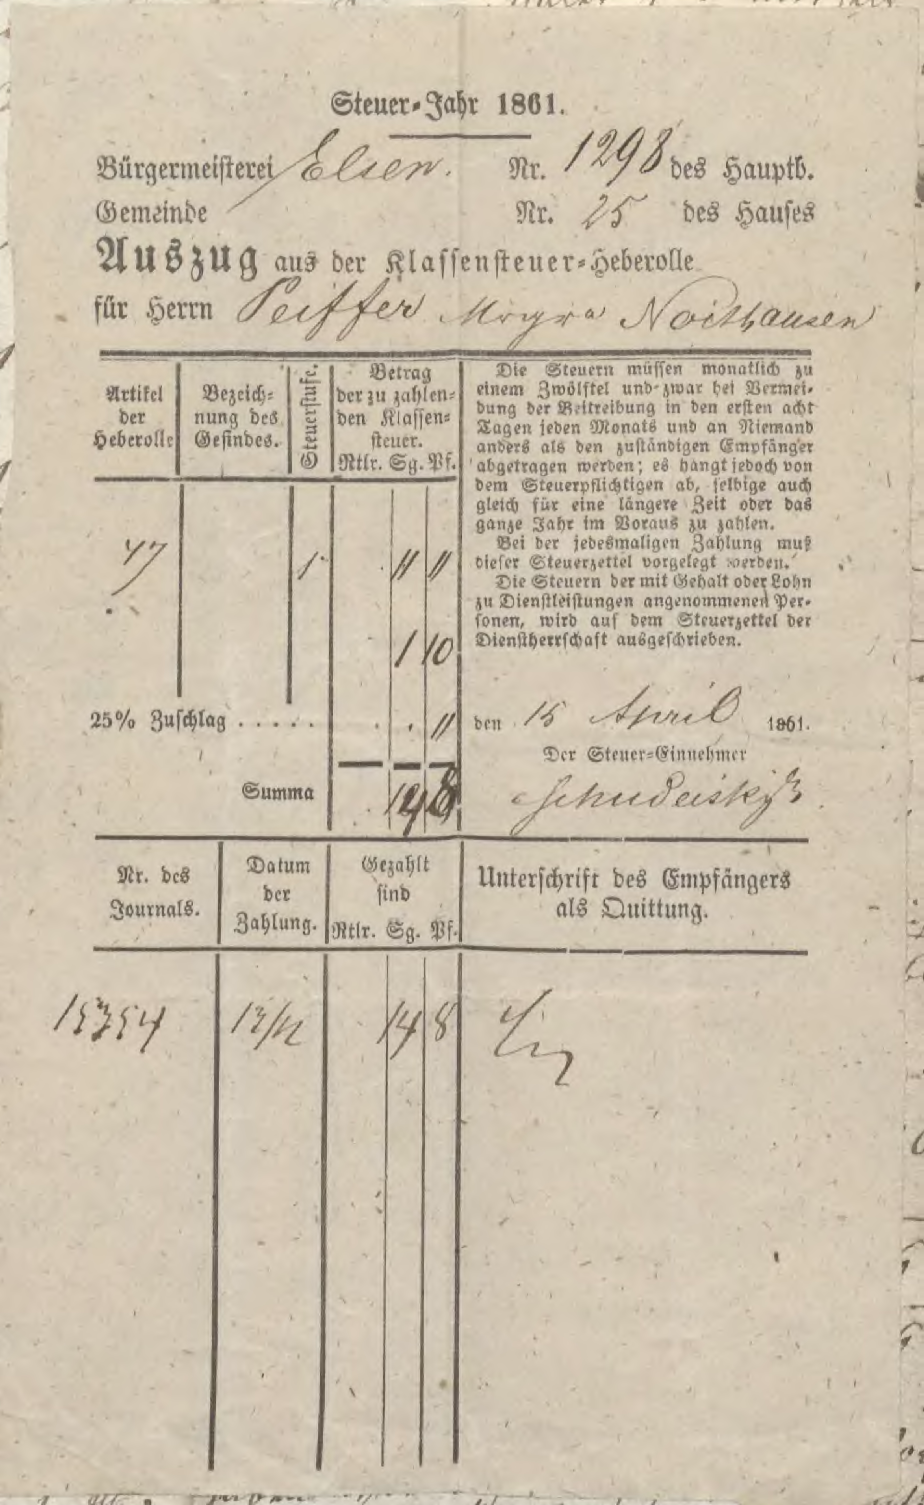 Steuer-Jahr 1861.
Bürgermeisterei Elsen. Nr. 1298 des Hauptb.
Gemeinde Nr. 25 des Hauses
Auszug aus der Klassensteuer-Heberolle
für Herrn Peiffer Noithausen
Artikel
der
Heberolle
Bezeich-
nung des
Gesindes.
Steuerstufe.
Betrag
der zu zahlen-
den Klassen-
steuer.
Rtlr. Sg. Pf.
Die Steuern müssen monatlich zu
einem Zwölftel und zwar bei Vermei-
dung der Beitreibung in den ersten acht
Tagen jeden Monats und an Niemand
anders als den zuständigen Empfänger
abgetragen werden; es hängt jedoch von
dem Steuerpflichtigen ab, selbige auch
gleich für eine längere Zeit oder das
ganze Jahr im Voraus zu zahlen.
Bei der jedesmaligen Zahlung muß
dieser Steuerzettel vorgelegt werden.
Die Steuern der mit Gehalt oder Lohn
zu Dienstleistungen angenommenen Per-
sonen, wird auf dem Steuerzettel der
Dienstherrschaft ausgeschrieben.
47 1 11 11
1 10
25% Zuschlag . . . . . 11
den 15 April 1861.
Der Steuer-Einnehmer
Summa 14 8
Nr. des
Journals.
Datum
der
Zahlung.
Gezahlt
sind
Rtlr. Sg. Pf.
Unterschrift des Empfängers
als Quittung.
15354 14 8